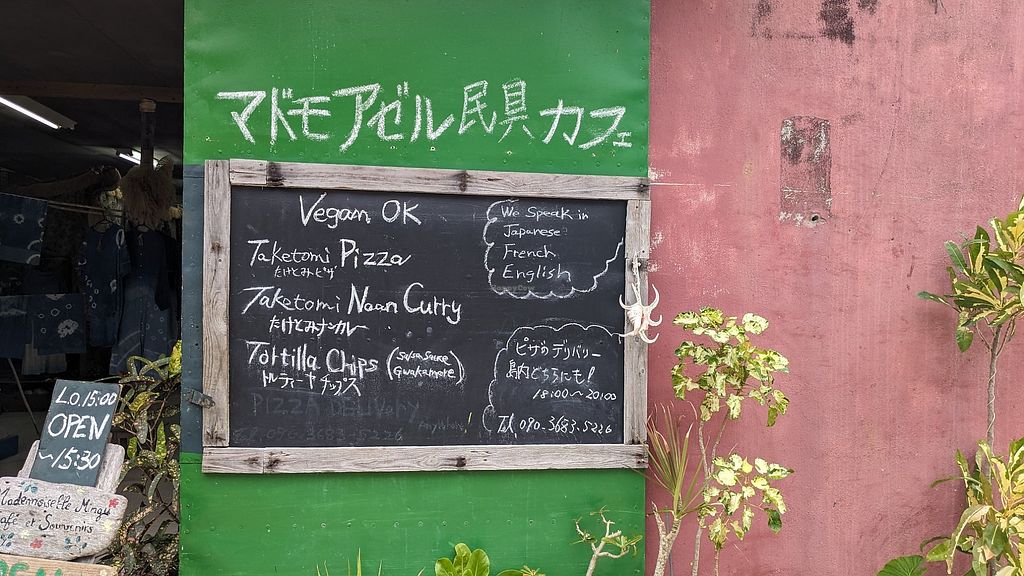 マドモアゼル民具カフェ
Vegan OK
Taketomi Pizza
たけとみピザ
Taketomi Naan Curry
たけとみナンカレー
Tortilla Chips (Salsa Sauce Guakamore)
トルティーヤチップス
PIZZA Delivery Anywhere!
090.3683.5226
We Speak in
Japanese
French
English
ピザのデリバリー
島内どちらにも!
18:00~20:00
Tel 090.3683.5226
L.O.15:00
OPEN
~15:30
Mademoiselle Mingu
Café et Souvenirs